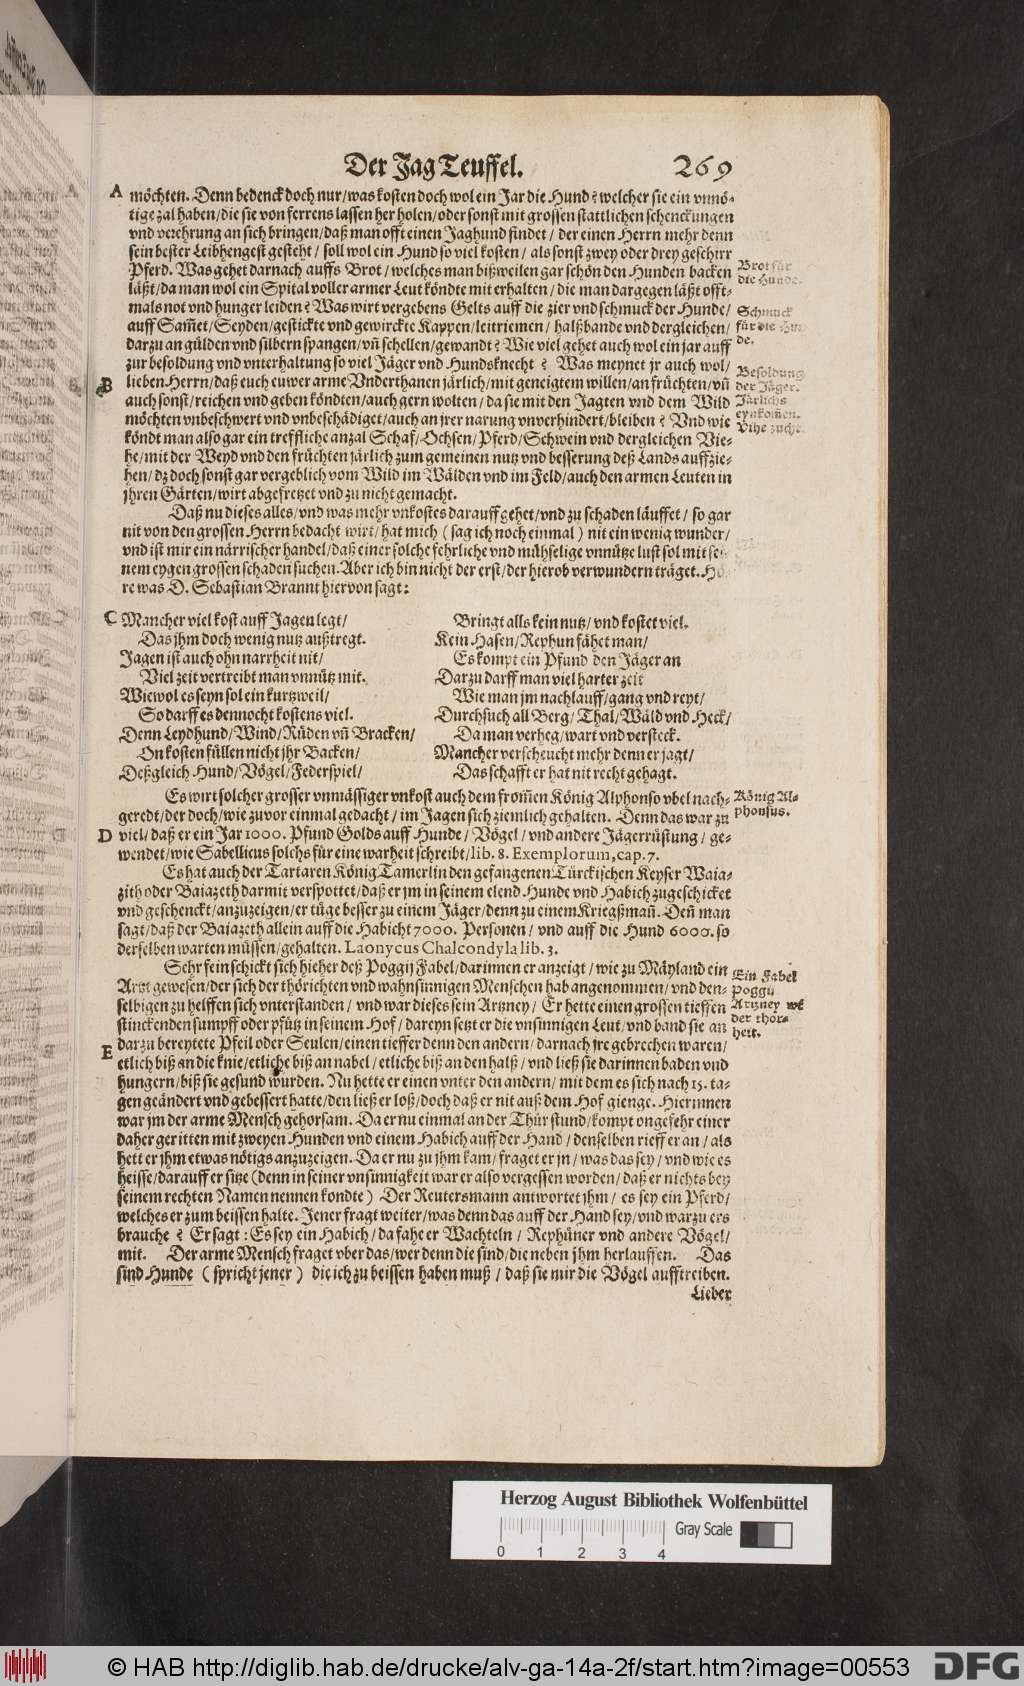 Der Jag Teuffel. 269
A möchten. Denn bedenck doch nur/was kosten doch wol ein Jar die Hund? welcher sie ein vnmö-
tige zal haben/die sie von ferrens lassen her holen/oder sonst mit grossen stattlichen schenckungen
vnd verehrung an sich bringen/daß man offt einen Jaghund findet/der einen Herrn mehr denn
sein bester Leibhengest gesteht/soll wol ein Hund so viel kosten/als sonst zwey oder drey geschirr
Pferd. Was gehet darnach auffs Brot/welches man bißweilen gar schön den Hunden backen
läßt/da man wol ein Spital voller armer Leut köndte mit erhalten/die man dargegen läßt offt-
mals not vnd hunger leiden? Was wirt vergebens Gelts auff die zier vnd schmuck der Hunde/
auff Sam̃et/Seyden/gestickte vnd gewirckte Kappen/leitriemen/halßbande vnd dergleichen/
darzu an gülden vnd silbern spangen/vñ schellen/gewandt? Wie viel gehet auch wol ein jar auff
zur besoldung vnd vnterhaltung so viel Jäger vnd Hundsknecht? Was meynet jr auch wol/
B lieben Herrn/daß euch euwer arme Vnderthanen järlich/mit geneigtem willen/an früchten/vñ
auch sonst/reichen vnd geben köndten/auch gern wolten/da sie mit den Jagten vnd dem Wild
möchten vnbeschwert vnd vnbeschädiget/auch an jrer narung vnverhindert/bleiben? Vnd wie
köndt man also gar ein treffliche anzal Schaf/Ochsen/Pferd/Schwein vnd dergleichen Vie-
he/mit der Weyd vnd den früchten järlich zum gemeinen nutz vnd besserung deß Lands auffzie-
hen/dz doch sonst gar vergeblich vom Wild im Wälden vnd im Feld/auch den armen Leuten in
jhren Gärten/wirt abgefretzet vnd zu nicht gemacht.
Daß nu dieses alles/vnd was mehr vnkostes darauff gehet/vnd zu schaden läuffet/so gar
nit von den grossen Herrn bedacht wirt/hat mich (sag ich noch einmal) nit ein wenig wunder/
vnd ist mir ein närrischer handel/daß einer solche fehrliche vnd mühselige vnnütze lust sol mit se
nem eygen grossen schaden suchen. Aber ich bin nicht der erst/der hierob verwundern träget. Hö
re was D. Sebastian Brannt hiervon sagt:
Brot für
die Hunde.
Schmuck
für die Hun
de.
Besoldung
der Jäger.
Järlichs
eynkom̃en.
Vihe zucht.
C Mancher viel kost auff Jagen legt/
Das jhm doch wenig nutz außtregt.
Jagen ist auch ohn narrheit nit/
Viel zeit vertreibt man vnnütz mit.
Wiewol es seyn sol ein kurtzweil/
So darff es dennocht kostens viel.
Denn Leydhund/Wind/Rüden vñ Bracken/
On kosten füllen nicht jhr Backen/
Deßgleich Hund/Vögel/Federspiel/
Bringt alls kein nutz/vnd kostet viel.
Kein Hasen/Rephun fähet man/
Es kompt ein Pfund den Jäger an
Darzu darff man viel harter zeit
Wie man jm nachlauff/gang vnd reyt/
Durchsuch all Berg/Thal/Wäld vnd Heck/
Da man verheg/wart vnd versteck.
Mancher verscheucht mehr denn er jagt/
Das schafft er hat nit recht gehagt.
Es wirt solcher grosser vnmässiger vnkost auch dem from̃en König Alphonso vbel nach-
geredt/der doch/wie zuvor einmal gedacht/im Jagen sich ziemlich gehalten. Denn das war zu
D viel/daß er ein Jar 1000. Pfund Golds auff Hunde/Vögel/vnd andere Jägerrüstung/ge-
wendet/wie Sabellicus solchs für eine warheit schreibt/lib. 8. Exemplorum, cap. 7.
Es hat auch der Tartaren König Tamerlin den gefangenen Türckischen Keyser Waia-
zith oder Baiazeth darmit verspottet/daß er jm in seinem elend Hunde vnd Habich zugeschicket
vnd geschenckt/anzuzeigen/er tüge besser zu einem Jäger/denn zu einem Kriegßmañ. Deñ man
sagt/daß der Baiazeth allein auff die Habicht 7000. Personen/vnd auff die Hund 6000. so
derselben warten müssen/gehalten. Laonycus Chalcondyla lib. 3.
König Al-
phonsus.
Sehr fein schickt sich hieher deß Poggij Fabel/darinnen er anzeigt/wie zu Mäyland ein
Artzt gewesen/der sich der thörichten vnd wahnsinnigen Menschen hab angenommen/vnd den-
selbigen zu helffen sich vnterstanden/vnd war dieses sein Artzney/Er hette einen grossen tieffen
stinckenden sumpff oder pfütz in seinem Hof/dareyn setzt er die vnsinnigen Leut/vnd band sie an
darzu bereytete Pfeil oder Seulen/einen tieffer denn den andern/darnach jre gebrechen waren/
E etlich biß an die knie/etliche biß an nabel/etliche biß an den halß/vnd ließ sie darinnen baden vnd
hungern/biß sie gesund wurden. Nu hette er einen vnter den andern/mit dem es sich nach 15. ta-
gen geändert vnd gebessert hatte/den ließ er loß/doch daß er nit auß dem Hof gienge. Hierinnen
war jm der arme Mensch gehorsam. Da er nu einmal an der Thür stund/kompt ongefehr einer
daher geritten mit zweyen Hunden vnd einem Habich auff der Hand/denselben rieff er an/als
hett er jhm etwas nötigs anzuzeigen. Da er nu zu jhm kam/fraget er jn/was das sey/vnd wie es
heisse/darauff er sitze (denn in seiner vnsinnigkeit war er also vergessen worden/daß er nichts bey
seinem rechten Namen nennen kondte) Der Reutersmann antwortet jhm/es sey ein Pferd/
welches er zum beissen halte. Jener fragt weiter/was denn das auff der Hand sey/vnd warzu ers
brauche? Er sagt: Es sey ein Habich/da fahe er Wachteln/Rephüner vnd andere Vögel/
mit. Der arme Mensch fraget vber das/wer denn die sind/die neben jhm herlauffen. Das
sind Hunde (spricht jener) die ich zu beissen haben muß/daß sie mir die Vögel aufftreiben.
Lieber
Ein Fabel
Poggij
Artzney wi
der thor-
heit.
Herzog August Bibliothek Wolfenbüttel
Gray Scale
0 1 2 3 4
© HAB http://diglib.hab.de/drucke/alv-ga-14a-2f/start.htm?image=00553
DFG